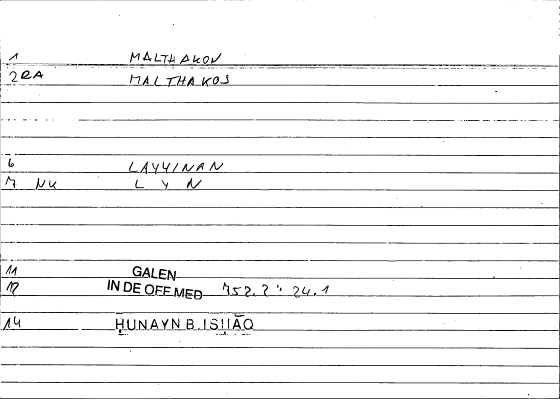 1 MALTHAKON
2 RA MALTHAKOS
6 LAYYINAN
7 NK L Y N
11 GALEN
12 IN DE OFF MED 752.2: 24.1
14 ḤUNAYN B. ISḤĀQ